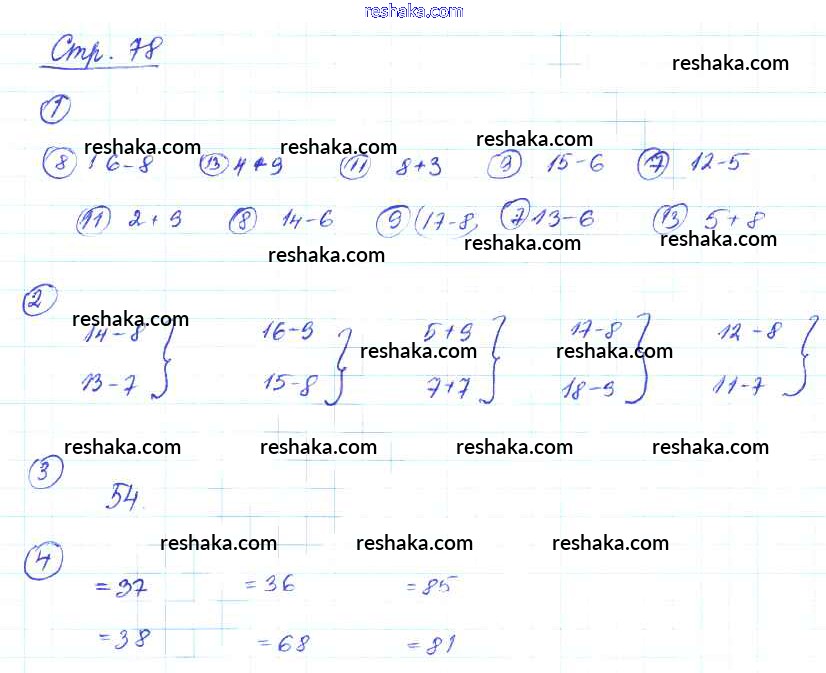 reshaka.com
Стр. 78
reshaka.com
1
reshaka.com reshaka.com reshaka.com
8 16-8 13 4+9 11 8+3 9 15-6 7 12-5
11 2+9 8 14-6 9 (17-8) 7 13-6 13 5+8
reshaka.com reshaka.com reshaka.com
2
reshaka.com
14-8 16-9 5+9 17-8 12-8
reshaka.com reshaka.com
13-7 15-8 7+7 18-9 11-7
reshaka.com reshaka.com reshaka.com reshaka.com
3
54.
reshaka.com reshaka.com reshaka.com
4
=37 =36 =85
=38 =68 =81